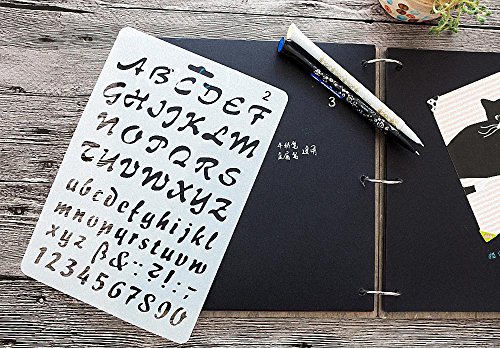 2
ABCDEF
GHIJKLM
NOPQRS
TUVWXYZ
abcdefghijkl
mnopqrstuvw
xyz ß&:;?!:,-
1234567890
3